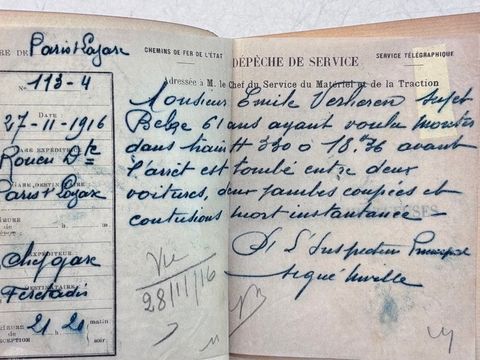 RE DE Paris St Lazare
No 113-4
DATE
27-11-1916
GARE EXPÉDITRICE
Rouen Dte
GARE DESTINATAIRE
Paris St Lazare
EXPÉDITEUR
Chefgare
DESTINATAIRE
21 20 matin
CEPTION soir
CHEMINS DE FER DE L'ÉTAT
DÉPÊCHE DE SERVICE
SERVICE TÉLÉGRAPHIQUE
Adressée à M. le Chef du Service du Matériel et de la Traction
Monsieur Emile Verharen sujet
Belge 61 ans ayant voulu monter
dans train 330 à 18.36 avant
l'arrêt est tombé entre deux
voitures, deux jambes coupées et
contusions mort instantanée
Pr L'Inspecteur Principal
signé
Vu
28/11/16